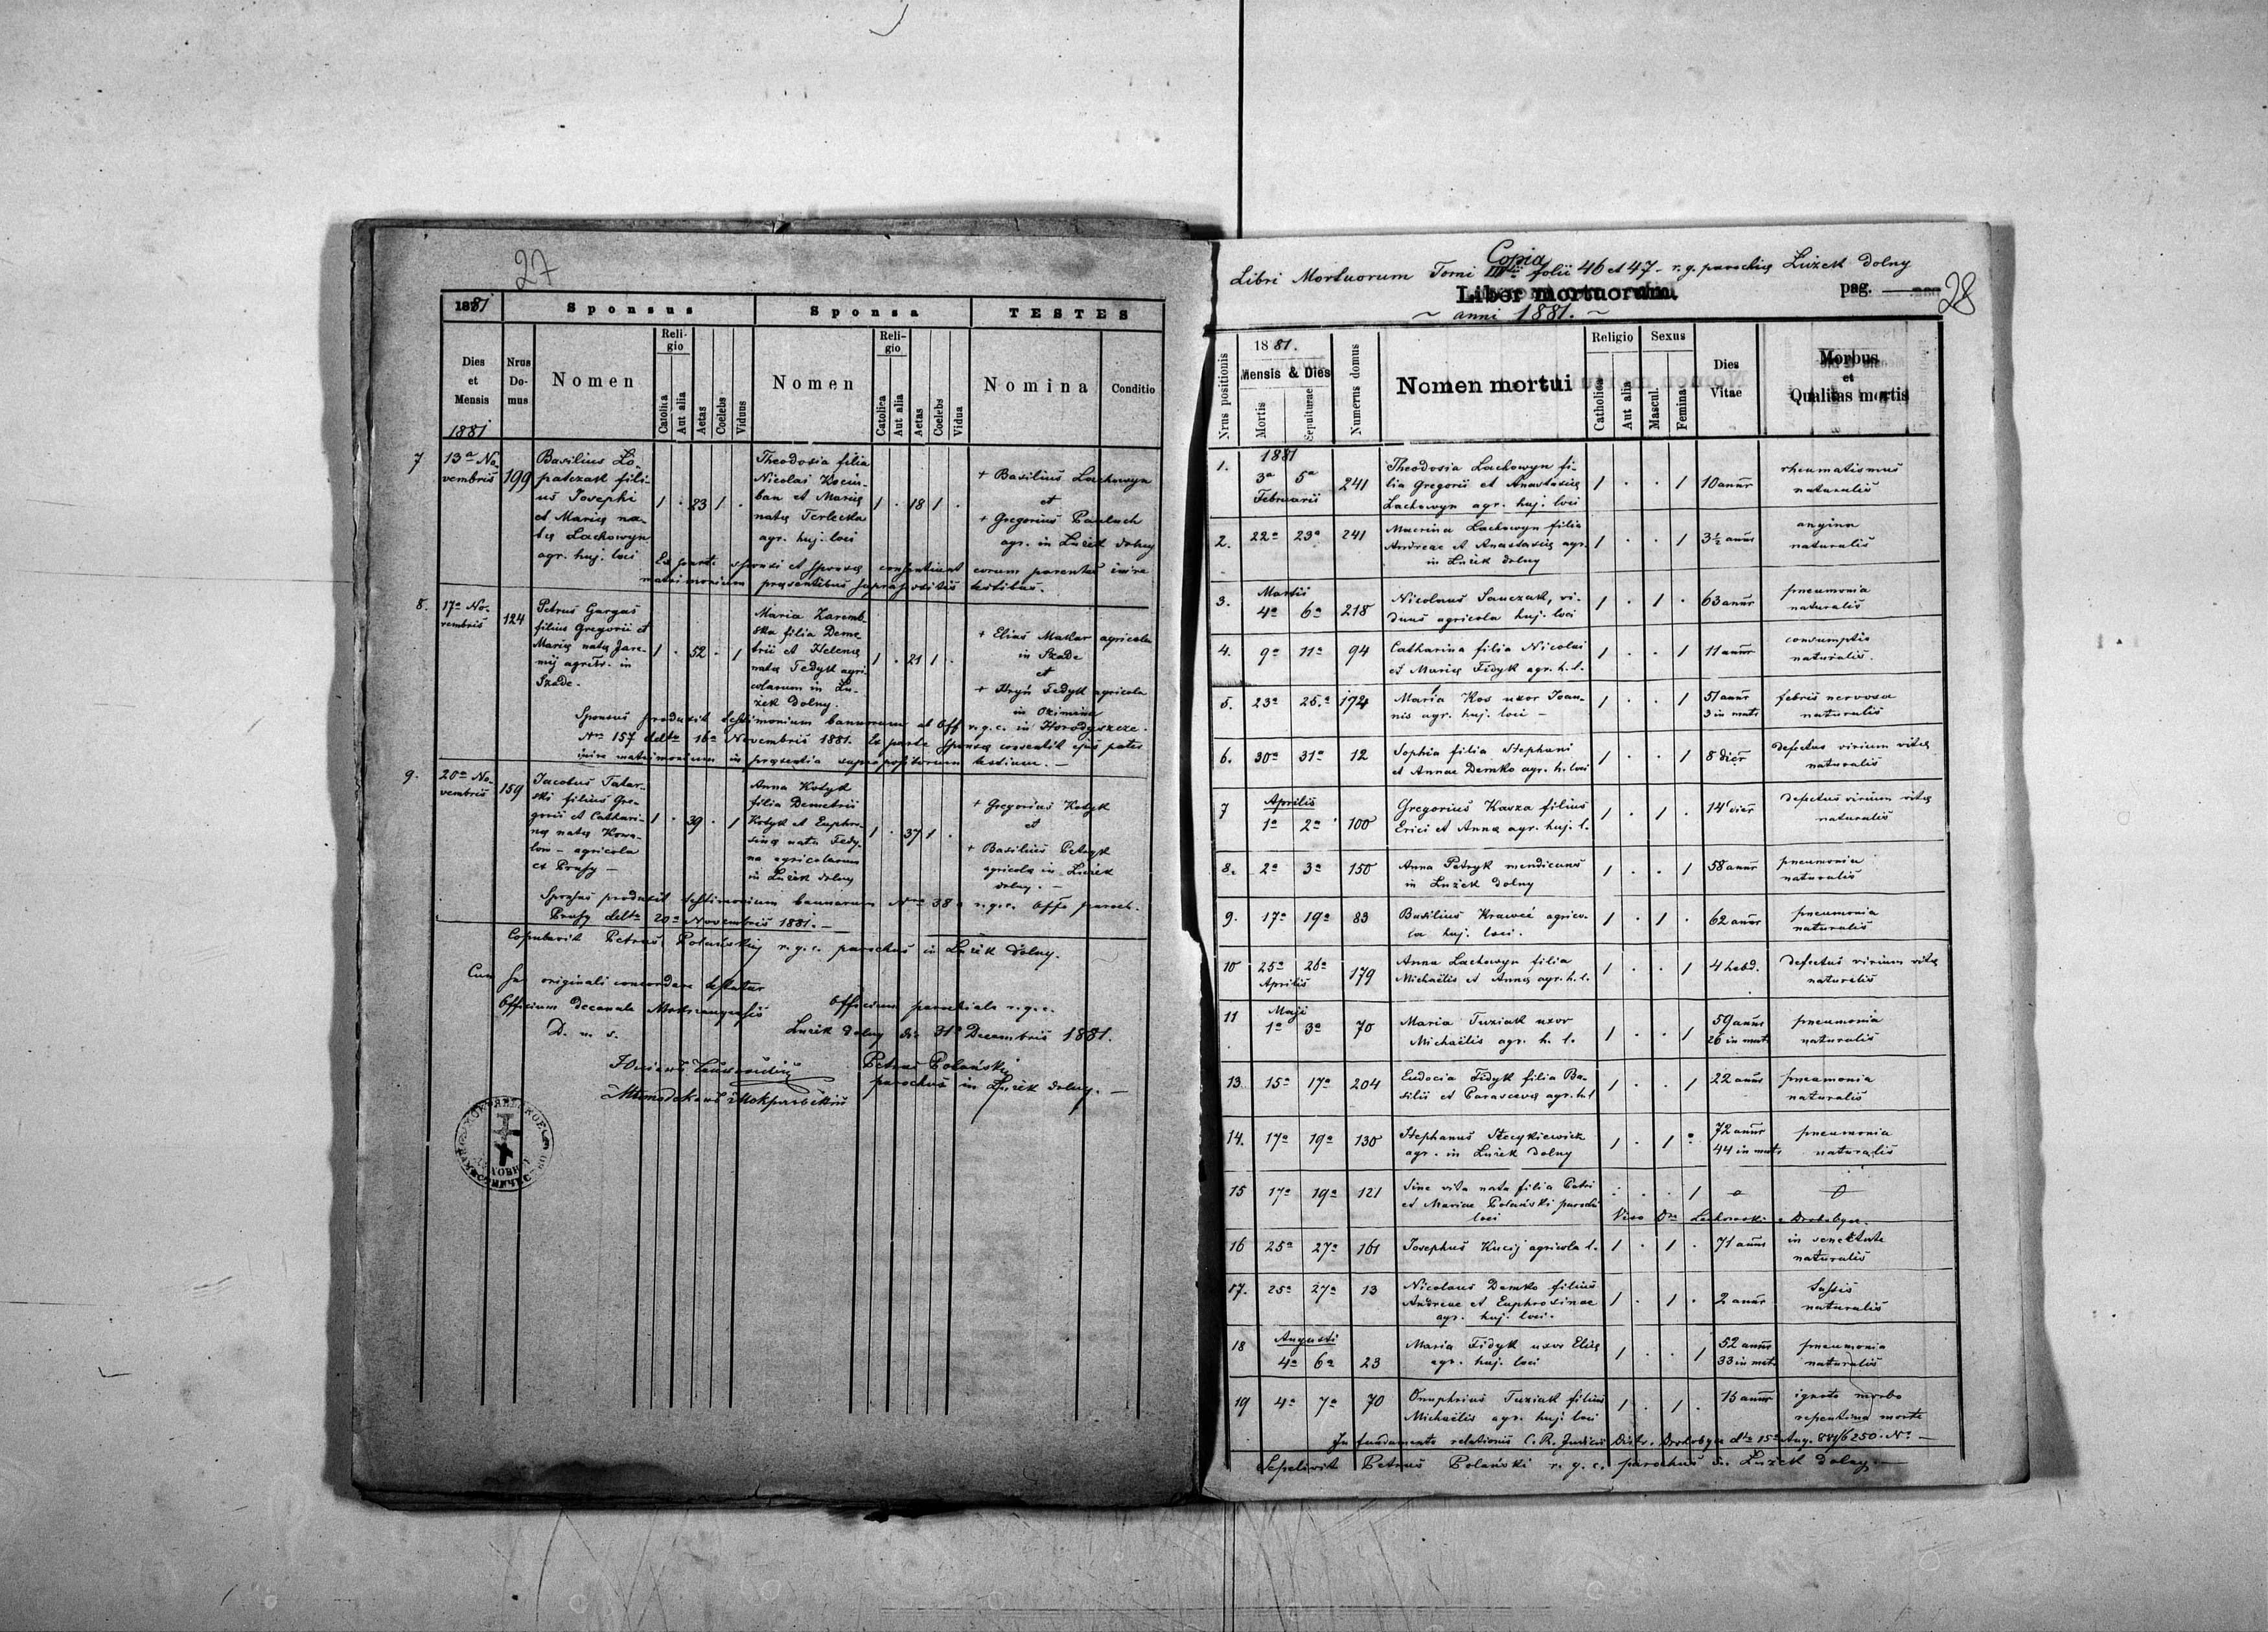 27
1881
Sponsus
Sponsa
TESTES
Dies et Mensis
Nrus Domus
Nomen
Religio
Catolica
Aut alia
Aetas
Coelebs
Viduus
Nomen
Religio
Catolica
Aut alia
Aetas
Coelebs
Vidua
Nomina
Conditio
1881
7
13a No-
vembris
199
Basilius Lo-
patczak fili-
us Josephi
et Marię na-
tę Lachowyn
agr. huj. loci
1 . 23 1 .
Theodosia filia
Nicolai Kocim-
ban et Marię
natę Terlecka
agr. huj. loci
1 . 18 1 .
+ Basilius Lachowyn
et
+ Gregorius Pauluch
agr. in Lużek dolny
Ex parte sponsi et sponsę consentiunt eorum parentes inire
matrimonium pręsentibus suprapositis testibus.
8.
17a No-
vembris
124
Petrus Gargas
filius Gregorii et
Marię natę Jare-
mij agricol. in
Szade.
1 . 52 . 1
Maria Zaremb-
ska filia Deme-
trii et Helenę
natę Fedyk agri-
colarum in Lu-
żek dolny.
1 . 21 1 .
+ Elias Makar agricola
in Szade
et
+ Hryń Fedyk agricola
in Ozimina
Sponsus produxit testimonium bannorum ab Off. r.g.c. in Horodyszcze.
Nro 157 ddto 16a Novembris 1881. Ex parte sponsę consentit ejus pater
inire matrimonium in pręsentia suprapositorum testium. —
9.
20a No-
vembris
159
Jacobus Tatar-
ski filius Gre-
gorii et Cathari-
nę natę Kowa-
low - agricola
et Prusy —
1 . 39 . 1
Anna Kotyk
filia Demetrii
Kotyk et Euphro-
sinę nata Fedy-
na agricolarum
in Lużek dolny
1 . 37 1 .
+ Gregorius Kotyk
et
+ Basilius Petryk
agricola in Lużek
dolny. —
Sponsus produxit testimonium bannorum Nro 38 a r.g.c. Offo paroch.
Prusy ddto 20a Novembris 1881. —
Copulavit Petrus Polański r. g. c. parochus in Lużek dolny.
Cum suo originali concordare testatur
Officium decanale Mokrzanense
D. u. s.
Officium parochiale r.g.c.
Lużek dolny die 31a Decembris 1881.
Petrus Polański
parochus in Lużek dolny. —
Copia
Libri Mortuorum Tomi IIItii folii 46 et 47 - r. g. parochię Lużek dolny
Liber mortuorum.
pag.
28
~ anni 1881. ~
Nrus positionis
1881.
Mensis & Dies
Mortis
Sepulturae
Numerus domus
Nomen mortui
Religio
Catholica
Aut alia
Sexus
Mascul.
Femina
Dies Vitae
Morbus et Qualitas mortis
1881
1. 3a 5a Februarii 241
Theodosia Lachowyn fi-
lia Gregorii et Anastasię
Lachowyn agr. huj. loci
1 . . 1 10 annor
rheumatismus
naturalis
2. 22a 23a 241
Macrina Lachowyn filia
Andreae et Anastasię agr.
in Lużek dolny
1 . . 1 3½ annor
angina
naturalis
Martii
3. 4a 6a 218
Nicolaus Sauczak, vi-
duus agricola huj. loci
1 . 1 . 63 annor
pneumonia
naturalis
4. 9a 11a 94
Catharina filia Nicolai
et Marię Fidyk agr. h. l.
1 . . 1 11 annor
consumptio
naturalis.
5. 23a 25.a 174
Maria Kos uxor Joan-
nis agr. huj. loci —
1 . . 1 51 annor
3 in matr
febris nervosa
naturalis
6. 30a 31a 12
Sophia filia Stephani
et Annae Demko agr. h. loci
1 . . 1 8 dier
defectus virium vitę
naturalis
Aprilis
7 1a 2a 100
Gregorius Kasza filius
Erici et Annę agr. huj. l.
1 . 1 . 14 dier
defectus virium vitę
naturalis
8. 2a 3a 150
Anna Petryk mendicans
in Lużek dolny
1 . . 1 58 annor
pneumonia
naturalis
9. 17a 19a 83
Basilius Krawci agrico-
la huj. loci.
1 . 1 . 62 annor
pneumonia
naturalis
10 25a 26a Aprilis 179
Anna Lachowyn filia
Michaëlis et Annę agr. h. l.
1 . . 1 4 hebd.
defectus virium vitę
naturalis
Maji
11 1a 3a 70
Maria Tuziak uxor
Michaëlis agr. h. l.
1 . . 1 59 annor
26 in matr
pneumonia
naturalis
13. 15a 17a 204
Eudocia Fidyk filia Ba-
silii et Parascevę agr. h. l
1 . . 1 22 annor
pneumonia
naturalis
14. 17a 19a 130
Stephanus Stecykiewicz
agr. in Lużek dolny
1 . 1 . 72 annor
44 in matr
pneumonia
naturalis
15 17a 19a 121
Sine vita nata filia Petri
et Mariae Polański parochi
loci
. . . 1
16 25a 27a 161
Josephus Kucij agricola l.
1 . 1 . 71 annor
in senectute
naturalis
17. 25a 27a 13
Nicolaus Demko filius
Andreae et Euphrosinae
agr. huj. loci.
1 . 1 . 2 annor
tussis
naturalis
Augusti
18 4a 6a 23
Maria Fidyk uxor Elię
agr. huj. loci
1 . . 1 52 annor
33 in matr
pneumonia
naturalis
19 4a 7a 70
Onuphrius Tuziak filius
Michaëlis agr. huj. loci
1 . 1 . 15 annor
ignoto morbo
repentina morte
In fundamento relationis C. R. Judicii Distr. Drohobycz dto 15a Aug. 881/6250. No —
Sepelivit Petrus Polański r. g. c. parochus in Lużek dolny. —